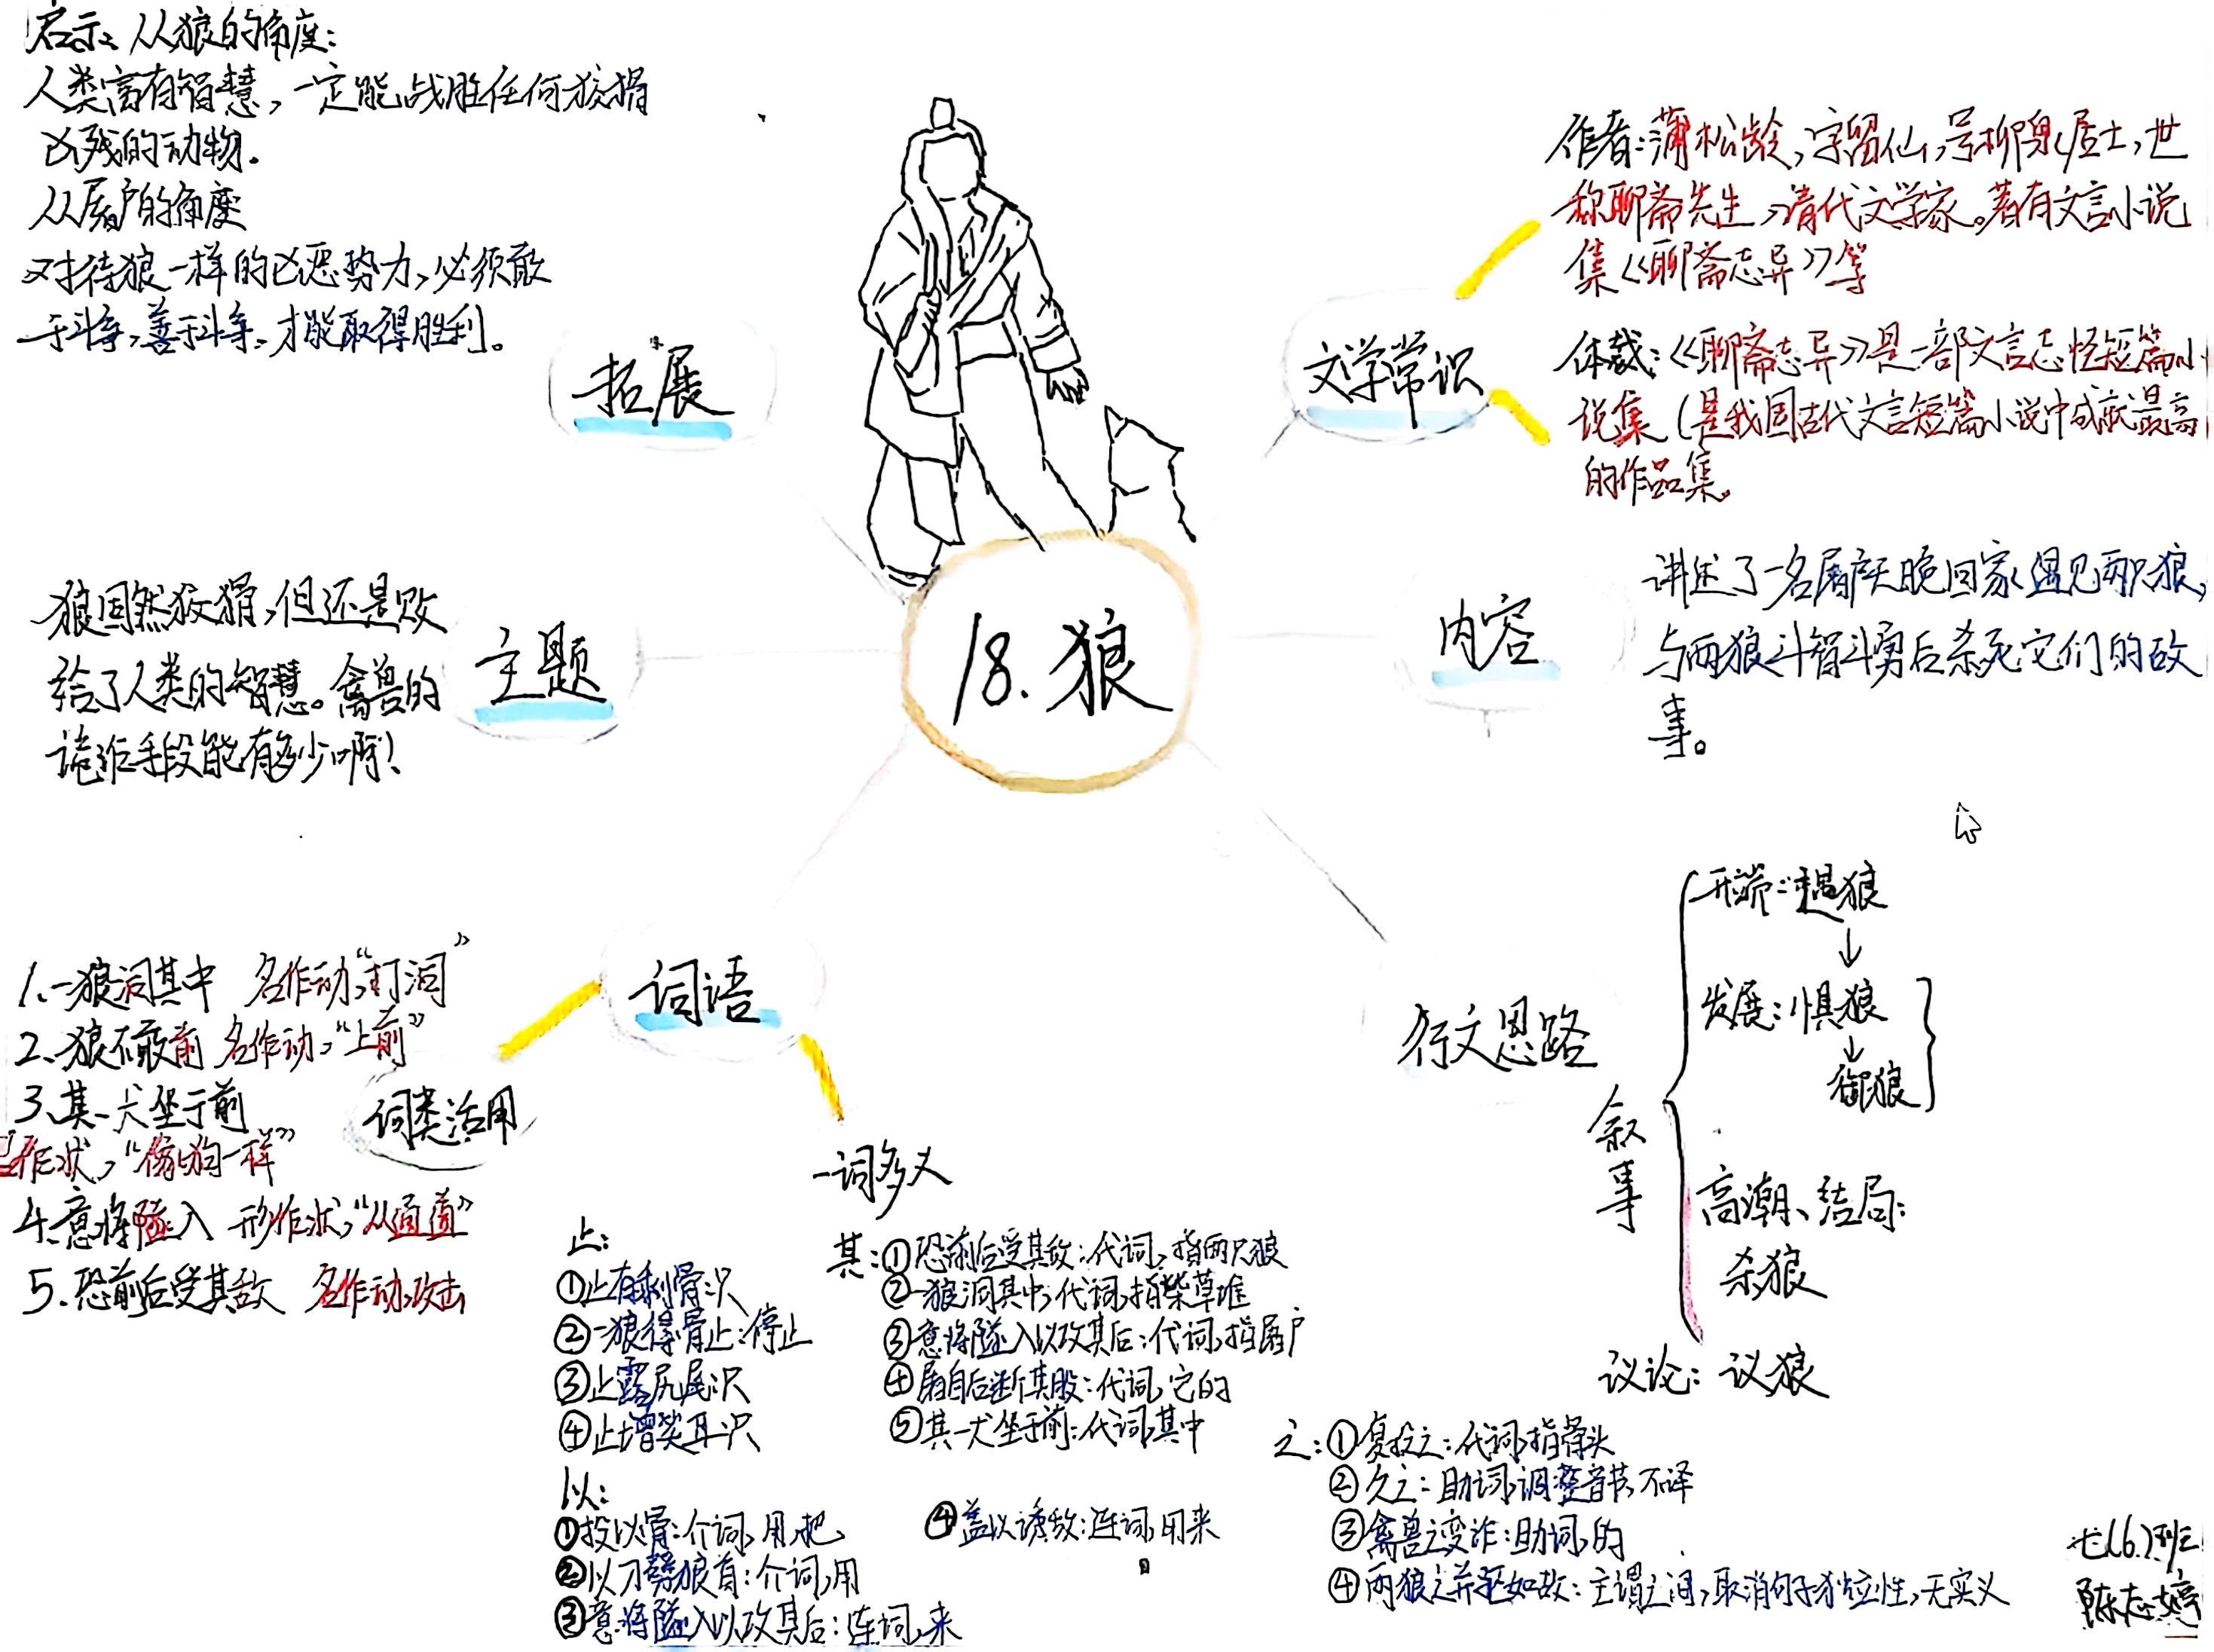 启示、从狼的角度：
人类富有智慧，一定能战胜任何狡猾
凶残的动物。
从屠户的角度
对待狼一样的凶恶势力，必须敢
于斗争，善于斗争、才能取得胜利。
拓展
作者：蒲松龄，字留仙，号柳泉居士，世
称聊斋先生，清代文学家。著有文言小说
集《聊斋志异》等
文学常识
体裁：《聊斋志异》是一部文言志怪短篇小
说集（是我国古代文言短篇小说中成就最高
的作品集。
18.狼
内容
讲述了一名屠户天晚回家遇见两只狼，
与两狼斗智斗勇后杀死它们的故
事。
主题
狼固然狡猾，但还是败
给了人类的智慧。禽兽的
诡诈手段能有多少啊！
词语
词类活用
1.一狼洞其中 名作动，“打洞”
2.狼不敢前 名作动，“上前”
3.其一犬坐于前
作状，“像狗一样”
4.意将隧入 形作状，“从通道”
5.恐前后受其敌 名作动，攻击
一词多义
止：
①止有剩骨：只
②一狼得骨止：停止
③止露尻尾：只
④止增笑耳：只
以：
①投以骨：介词，用，把
②以刀劈狼首：介词，用
③意将隧入以攻其后：连词，来
④盖以诱敌：连词，用来
其：①恐前后受其敌：代词，指两只狼
②一狼洞其中：代词，指柴草堆
③意将隧入以攻其后：代词，指屠户
④屠自后断其股：代词，它的
⑤其一犬坐于前：代词，其中
之：①复投之：代词，指骨头
②久之：助词，调整音节，不译
③禽兽之变诈：助词，的
④两狼之并驱如故：主谓之间，取消句子独立性，无实义
行文思路
叙事
开端：遇狼
↓
发展：惧狼
↓
御狼
高潮、结局：
杀狼
议论：议狼
七（6）班
陈志婷